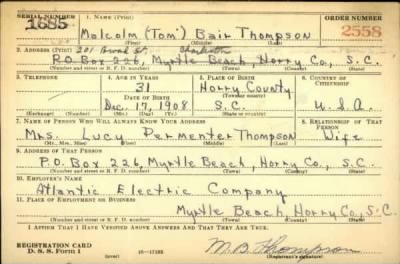 SERIAL NUMBER
ORDER NUMBER
1685
Malcolm (Tom) Bair Thompson
2558
(First) (Middle) (Last)
2. ADDRESS (Print) 201 Broad St. Charleston
P.O. Box 226, Myrtle Beach, Horry Co., S.C.
(Number and street or R. F. D. number) (Town) (County) (State)
3. TELEPHONE
4. AGE IN YEARS
5. PLACE OF BIRTH
6. COUNTRY OF CITIZENSHIP
31
Horry County
DATE OF BIRTH
(Town or county)
Dec. 17, 1908
S.C.
U.S.A
(Exchange) (Number)
(Mo.) (Day) (Yr.)
(State or country)
7. NAME OF PERSON WHO WILL ALWAYS KNOW YOUR ADDRESS
8. RELATIONSHIP OF THAT PERSON
Mrs. Lucy Permenter Thompson Wife
(Mr., Mrs., Miss) (First) (Middle) (Last)
9. ADDRESS OF THAT PERSON
P.O. Box 226, Myrtle Beach, Horry Co., S.C.
(Number and street or R. F. D. number) (Town) (County) (State)
10. EMPLOYER'S NAME
Atlantic Electric Company
11. PLACE OF EMPLOYMENT OR BUSINESS
Myrtle Beach, Horry Co., S.C.
(Number and street or R. F. D. number) (Town) (County) (State)
I AFFIRM THAT I HAVE VERIFIED ABOVE ANSWERS AND THAT THEY ARE TRUE.
REGISTRATION CARD
D. S. S. Form 1
(over)
M B Thompson
(Registrant's signature)